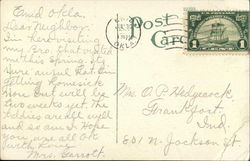 Enid Okla.
Dear Neighbor,
I'm here visiting
my Bro. that visited
me this Spring. It's
here awful hot. I'm
getting homesick
now but will be
two weeks yet. The
are all well
and so am I. Hope
you are all ok
with Love
Mrs. Garrott.
Post
Card
OKLA
1
Mrs. O. P. Hedgecock
Frankfort
Ind.
801 N- Jackson St